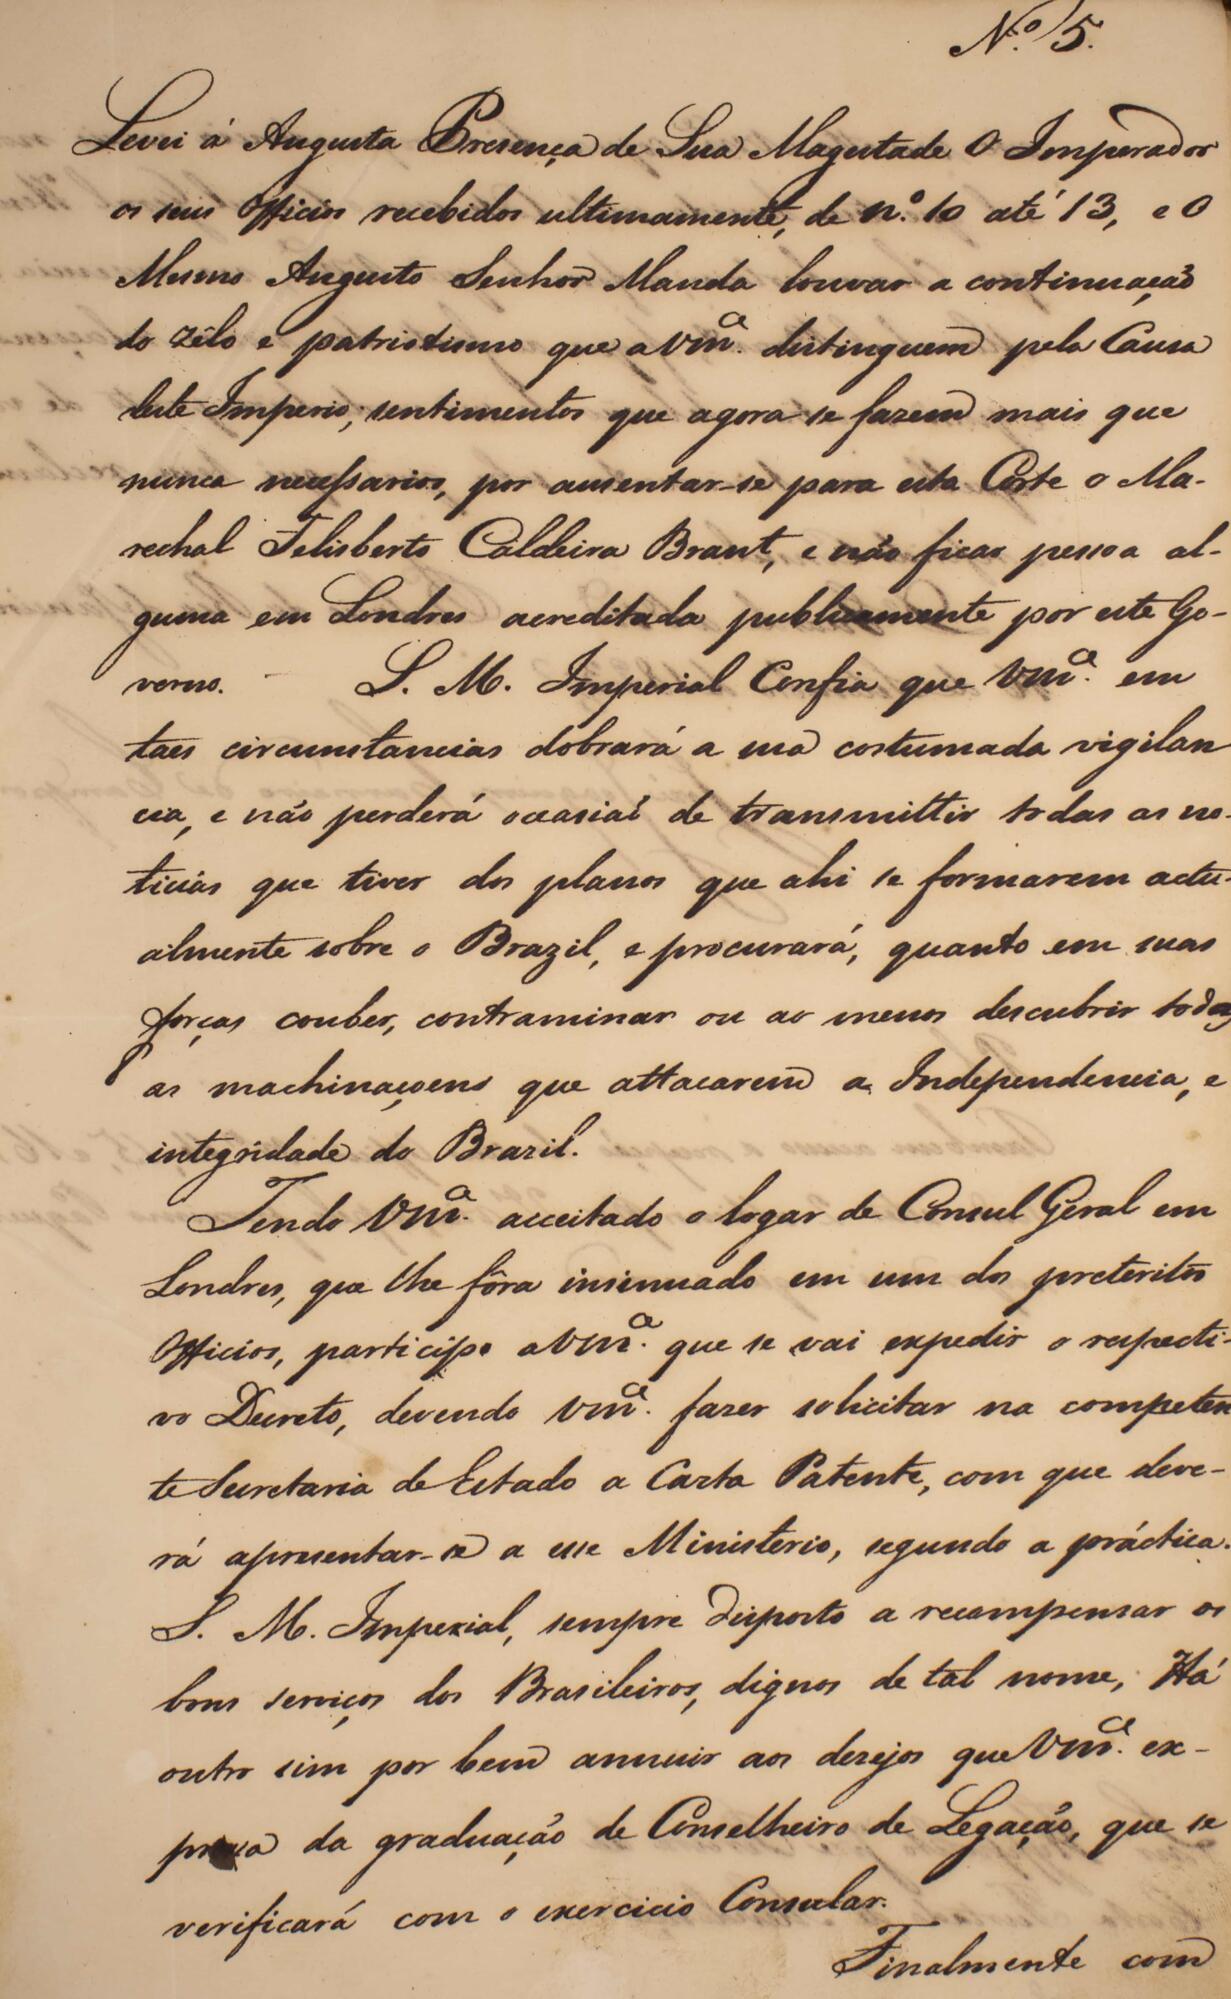 N.º 5.
Levei á Augusta Presença de Sua Magestade O Imperador
os seus Officios recebidos ultimamente, de n.º 10 até 13, e O
Mesmo Augusto Senhor Manda louvar a continuação
do zêlo e patriotismo que a Vm.ce distinguem pela Causa
deste Imperio; sentimentos que agora se fazem mais que
nunca necessarios, por ausentar-se para esta Corte o Ma-
rechal Felisberto Caldeira Brant, e não ficar pessoa al-
guma em Londres acreditada publicamente por este Go-
verno. S. M. Imperial Confia que Vm.ce em
taes circunstancias dobrará a sua costumada vigilan
cia, e não perderá occasiaõ de transmittir todas as no-
ticias que tiver dos planos que ahi se formarem actu-
almente sobre o Brazil, e procurará, quanto em suas
forças couber, contraminar ou ao menos descubrir todas
as machinaçoens que attacarem a Independencia, e
integridade do Brazil.
Tendo Vm.ce acceitado o logar de Consul Geral em
Londres, que lhe fôra insinuado em um dos preteritos
Officios, participo a Vm.ce que se vai expedir o respecti-
vo Decreto, devendo Vm.ce fazer solicitar na competen
te Secretaria de Estado a Carta Patente, com que deve-
rá apresentar-se a esse Ministerio, segundo a práctica.
S. M. Imperial, sempre disposto a recompensar os
bons serviços dos Brasileiros, dignos de tal nome, Há
outro sim por bem annuir aos desejos que Vm.ce ex-
pressa da graduação de Conselheiro de Legação, que se
verificará com o exercicio Consular.
Finalmente com